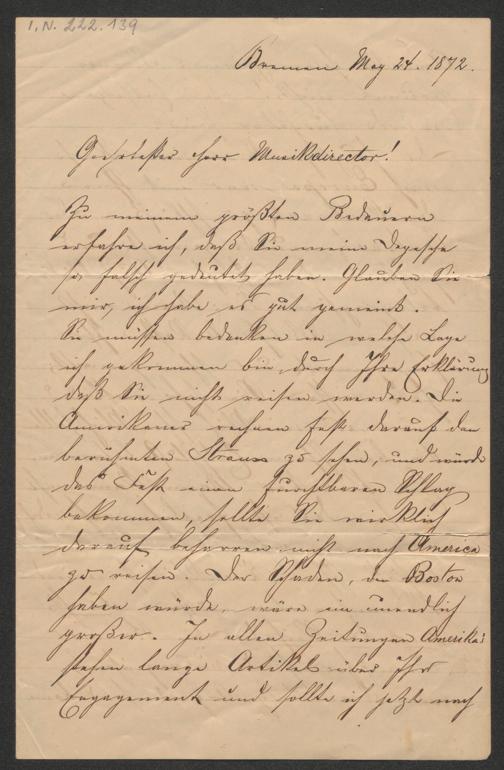 I.N. 222.139
Bremen May 24. 1872.
Geehrtester Herr Musikdirector!
Zu meinem größten Bedauern
erfahre ich, daß Sie meine Depesche
so falsch gedeutet haben. Glauben Sie
mir, ich habe es gut gemeint.
Sie müssen bedenken in welche Lage
ich gekommen bin durch Ihre Erklärung
daß Sie nicht reisen werden. Die
Amerikaner rechnen fest darauf den
berühmten Strauss zu sehen, und würde
das Fest einen furchtbaren Schlag
bekommen, sollte Sie wirklich
darauf beharren nicht nach America
zu reisen. Der Schaden, den Boston
haben würde, wäre ein unendlich
großer. In allen Zeitungen Amerika's
stehen lange Artikel über Ihr
Engagement und sollte ich jetzt nach